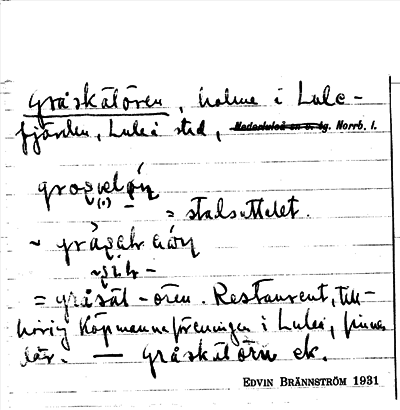 Gråskälören, holme i Lule-
fjärden, Luleå stad, Nederluleå sn o. tg. Norrb. l.
= stalsuttalet.
~
= gråsäl-ören. Restaurent, till-
hörig Köpmannaföreningen i Luleå, finnes
där. — Gråskälörn ek.
EDVIN BRÄNNSTRÖM 1931